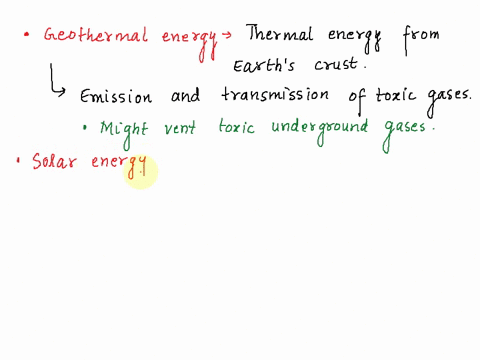 • Geothermal energy → Thermal energy from
Earth's crust.
↳ Emission and transmission of toxic gases.
• Might vent toxic underground gases.
• Solar energy